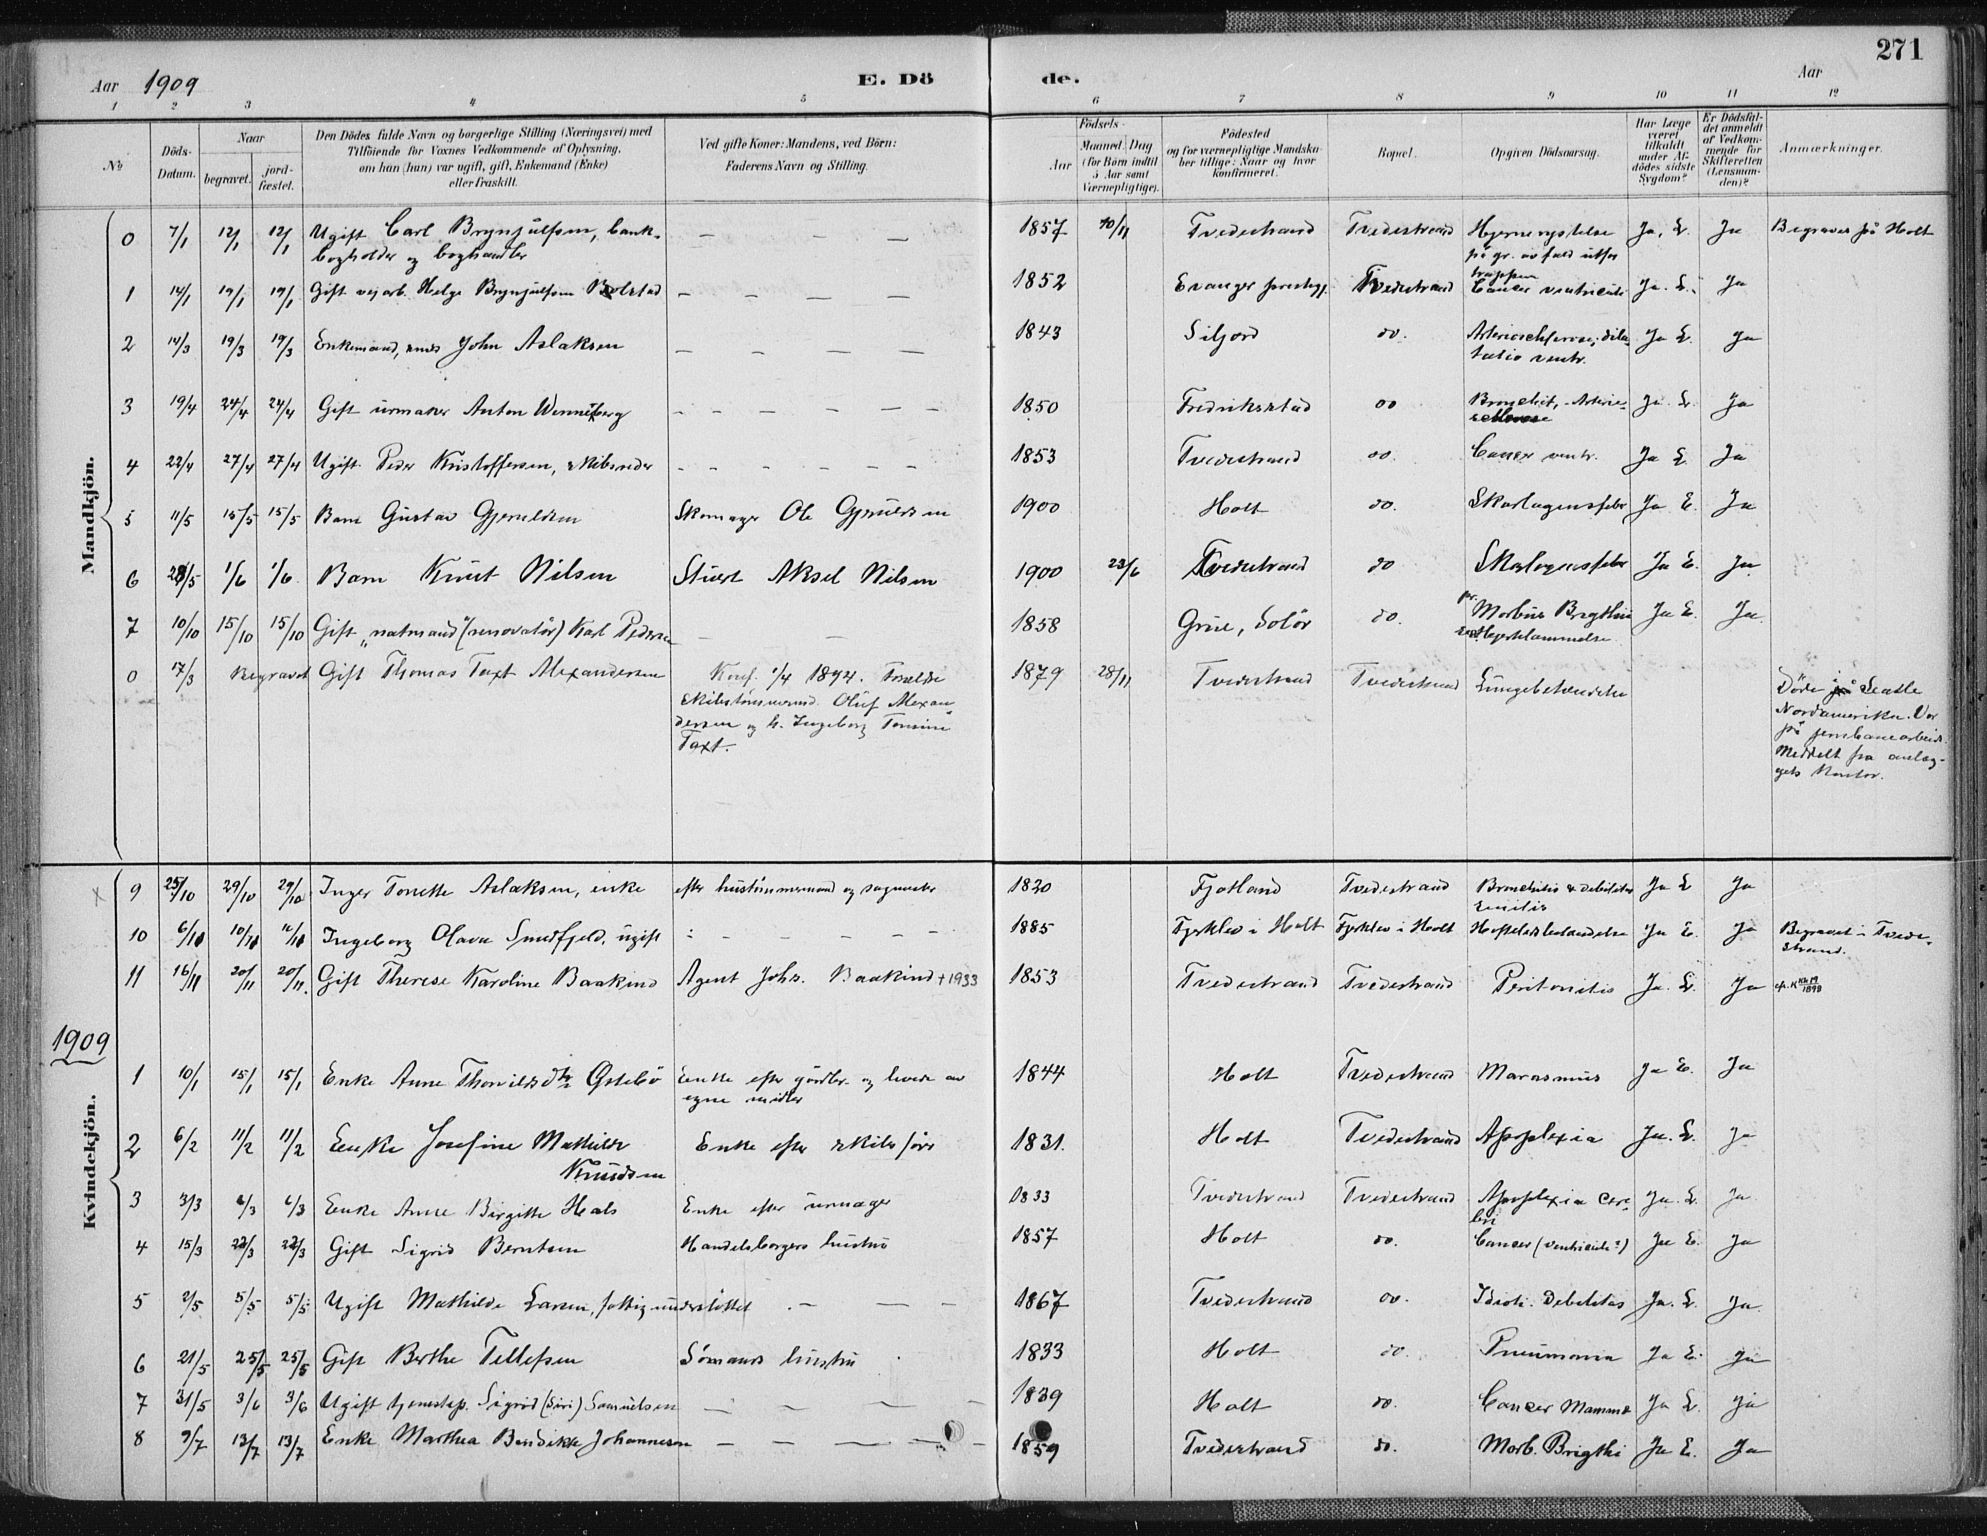 271
Aar 1909 E. Dö de. Aar
1 2 3 4 5 6 7 8 9 10 11 12
No Döds-Datum. Naar begravet. jordfæstet. Den Dödes fulde Navn og borgerlige Stilling (Næringsvei) med Tilföiende for Voxnes Vedkommende af Oplysning, om han (hun) var ugift, gift, Enkemand (Enke) eller fraskilt. Ved gifte Koner: Mandens, ved Börn: Faderens Navn og Stilling. Födsels- Aar Maaned Dag (for Börn indtil 5 Aar samt Værnepligtige). Födested og for værnepligtige Mandskaber tillige: Naar og hvor konfirmeret. Bopæl. Opgiven Dödsaarsag. Har Læge været tilkaldt under Afdödes sidste Sygdom? Er Dödsfaldet anmeldt af Vedkommende for Skifteretten (Lensmanden)? Anmærkninger.
Mandkjön.
0 7/1 12/1 12/1 Ugift Carl Brynjulfsen, bank- — — — 1857 10/11 Tvedestrand Tvedestrand Hjernerystelse Ja, L. Ja Begraves på Holt
bogholder og boghandler på gr. av fald utfor
trappen
1 14/1 19/1 19/1 Gift vejarb. Helge Brynjulfsen Bolstad — — — — 1852 Evanger prestegj. Tvedestrand Cancer ventriculi Ja. L. Ja
2 14/3 19/3 19/3 Enkemand, smed John Aslaksen — — — — 1843 Siljord do. Arteriosclerose, dila- Ja L. Ja
tatio ventr.
3 19/4 24/4 24/4 Gift urmaker Anton Wenneberg — — — — 1850 Fredrikstad do Bronchit, Arterie- Ja. L. Ja
sclerose
4 22/4 27/4 27/4 Ugift Peder Kristoffersen, skibsreder — — — — 1853 Tvedestrand do. Cancer ventr. Ja L. Ja
5 11/5 15/5 15/5 Barn Gustav Gjeruldsen Skomager Ole Gjeruldsen 1900 Holt do. Skarlagensfeber Ja L. Ja
6 28/5 1/6 1/6 Barn Knut Nilsen Stuert Aksel Nilsen 1900 23/6 Tvedestrand do Skarlagensfeber Ja L. Ja
7 10/10 15/10 15/10 Gift "natmand" (renovatør) Karl Pedersen — — 1858 Grue, Solör do. Morbus Brigthii Ja L. Ja
Hjerteslammelse
0 17/3 Begravet Gift Thomas Taxt Alexandersen Konf. 1/4 1894. Forældre 1879 28/11 Tvedestrand Tvedestrand Lungebetændelse Döde i Seatle
skibstømmermand Oluf Alexan- Nordamerika. Var
dersen og h. Ingeborg Tomine på jernbanearbeide.
Taxt. Meddelt fra anlæg-
gets Kontor.
9 25/10 29/10 29/10 Inger Tonette Aslaksen, enke efter hustømmermand og 1820 Fjotland Tvedestrand Bronchitis & debilitas Ja L Ja
senilis
10 6/11 10/11 11/11 Ingeborg Olava Smedfjeld, ugift — — — — 1885 Fjerklev i Holt Fjerklev i Holt Hofteledsbetændelse Ja L. Ja Begravet i Tvede-
strand.
11 16/11 20/11 20/11. Gift Therese Karoline Baakind Agent Johs. Baakind † 1933 1853 Tvedestrand Tvedestrand Peritonitis Ja. L. Ja
1909
Kvindekjön.
1 10/1 15/1 15/1 Enke Anne Thorvildsdtr Østebö Enke efter gårdbr. og levde av 1844 Holt Tvedestrand Marasmus Ja L. Ja
egne midler
2 6/2 11/2 11/2 Enke Josefine Mathilde Enke efter skibsfører 1831. Holt Tvedestrand Apoplexia Ja. L. Ja
Knudsen
3 3/3 6/3 6/3 Enke Anne Birgitte Hals Enke efter urmager 1833 Tvedestrand Tvedestrand Apoplexia cere- Ja. L. Ja
bri
4 15/3 22/3 22/3 Gift Sigrid Berntsen Handelsborgers hustru 1857 Holt do. Cancer (ventriculi?) Ja L. Ja
5 2/5 5/5 5/5 Ugift Mathilde Larsen, fattigunderstöttet — — — 1867 Tvedestrand do. Idioti. Debilitas Ja. L. Ja
6 21/5 25/5 25/5 Gift Berthe Tellefsen Sömands hustru 1833 Holt do. Pneumonia Ja L. Ja
7 31/5 3/6 3/6 Ugift tjenestep. Sigrid (Siri) Samuelsen — — — — 1839 Holt do. Cancer Mamma Ja L. Ja
8 9/7 13/7 13/7 Enke Marthea Bendikte Johannesen — — — — 1859 Tvedestrand do. Morb. Brigthi Ja L. Ja